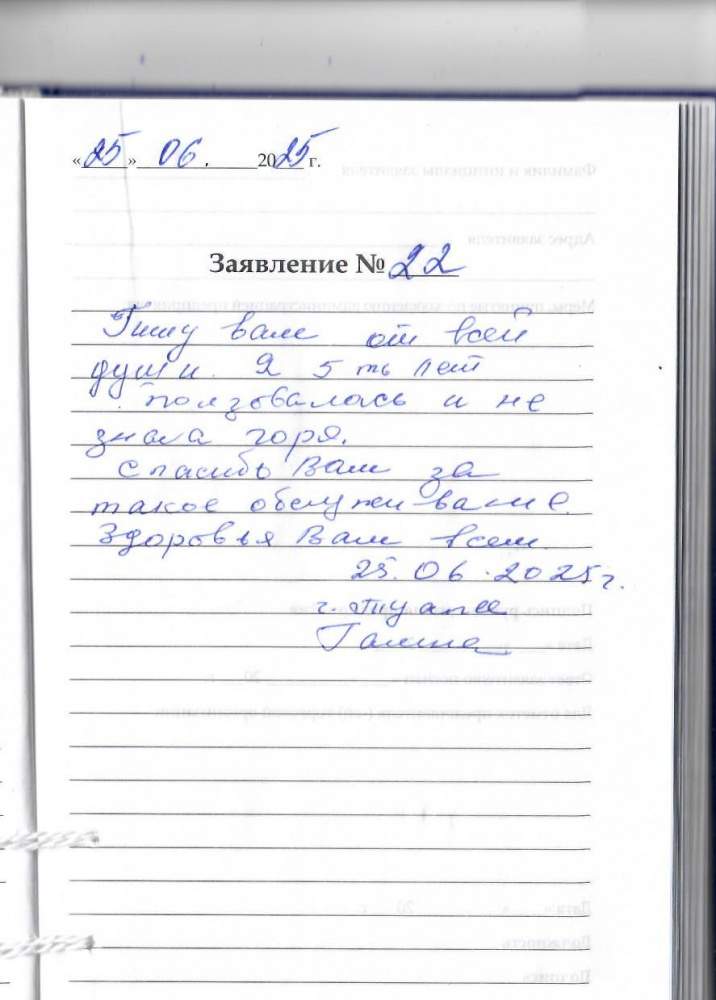 «25» 06. 2025 г.
Заявление № 22
Пишу вам от всей
души. Я 5 ть лет
пользовалась и не
знала горя.
Спасибо Вам за
такое обслуживание.
Здоровья Вам всем.
25.06.2025 г.
г. Туапсе
Галина